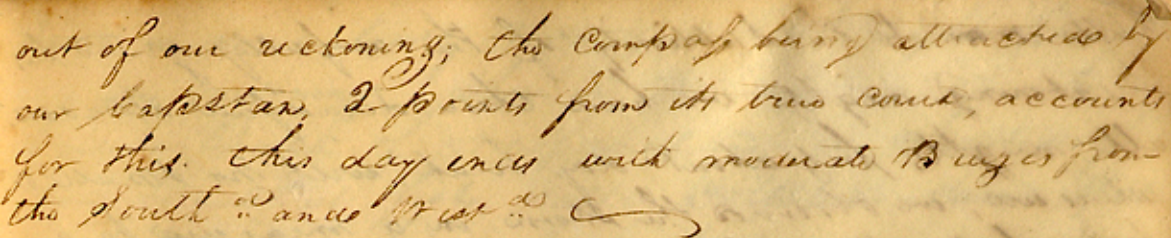 out of our reckoning; the Compass being attracted by
our Capstan, 2 points from its true course, accounts
for this. this day ends with moderate Breezes from
the South^d and West^d